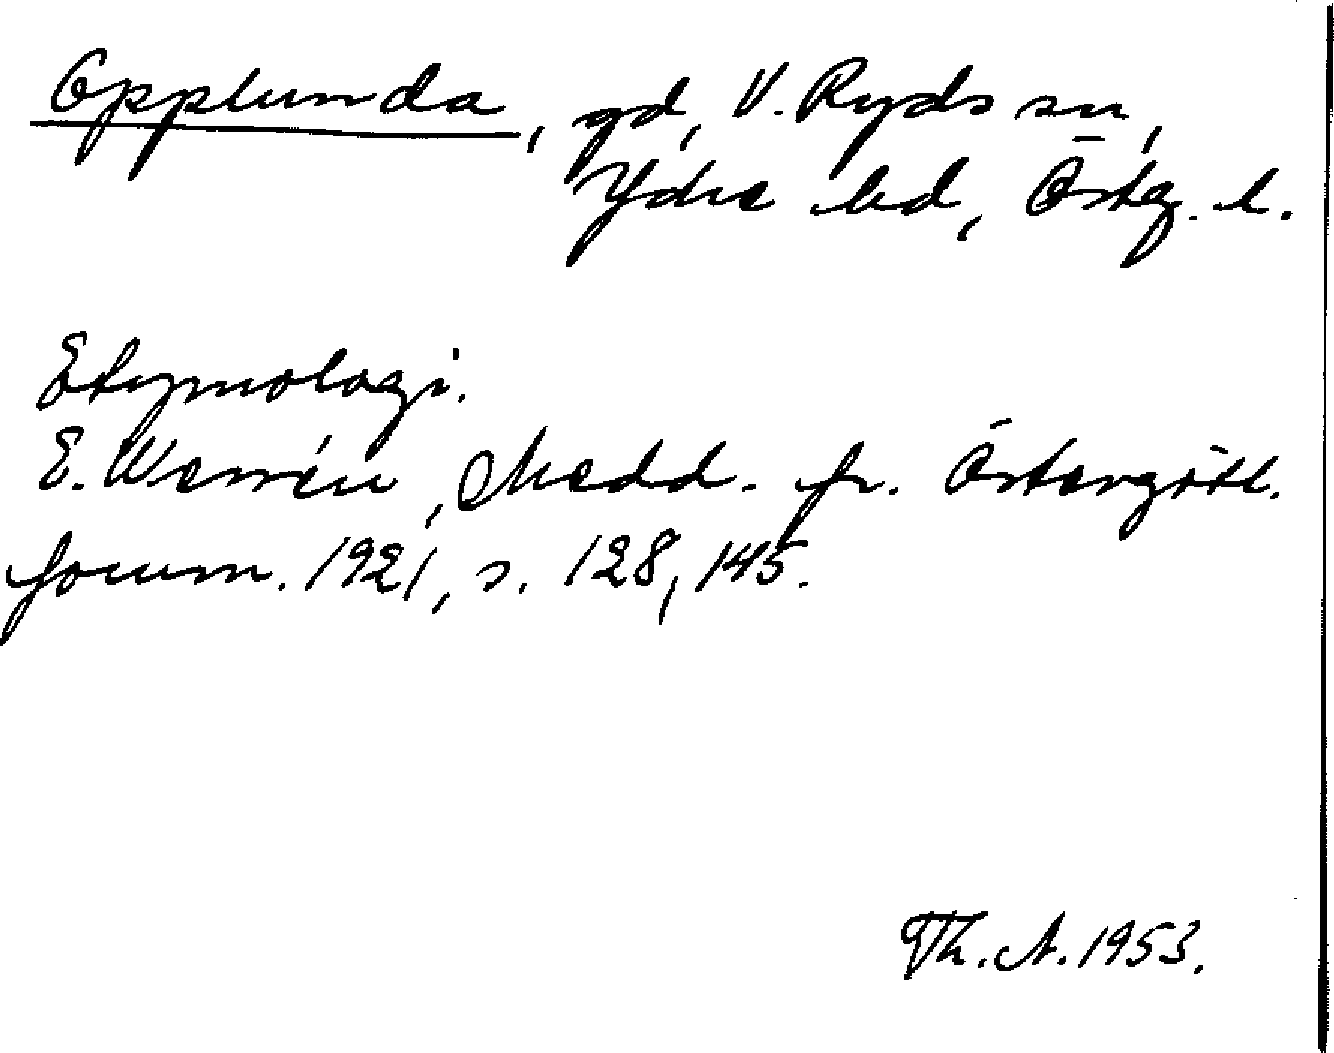 Opplunda, gd, V. Ryds sn,
Ydre hd, Östg. l.
Etymologi.
E. Wennén, Medd. fr. Östergötl.
fornm. 1921, s. 128, 145.
Th. A. 1953.